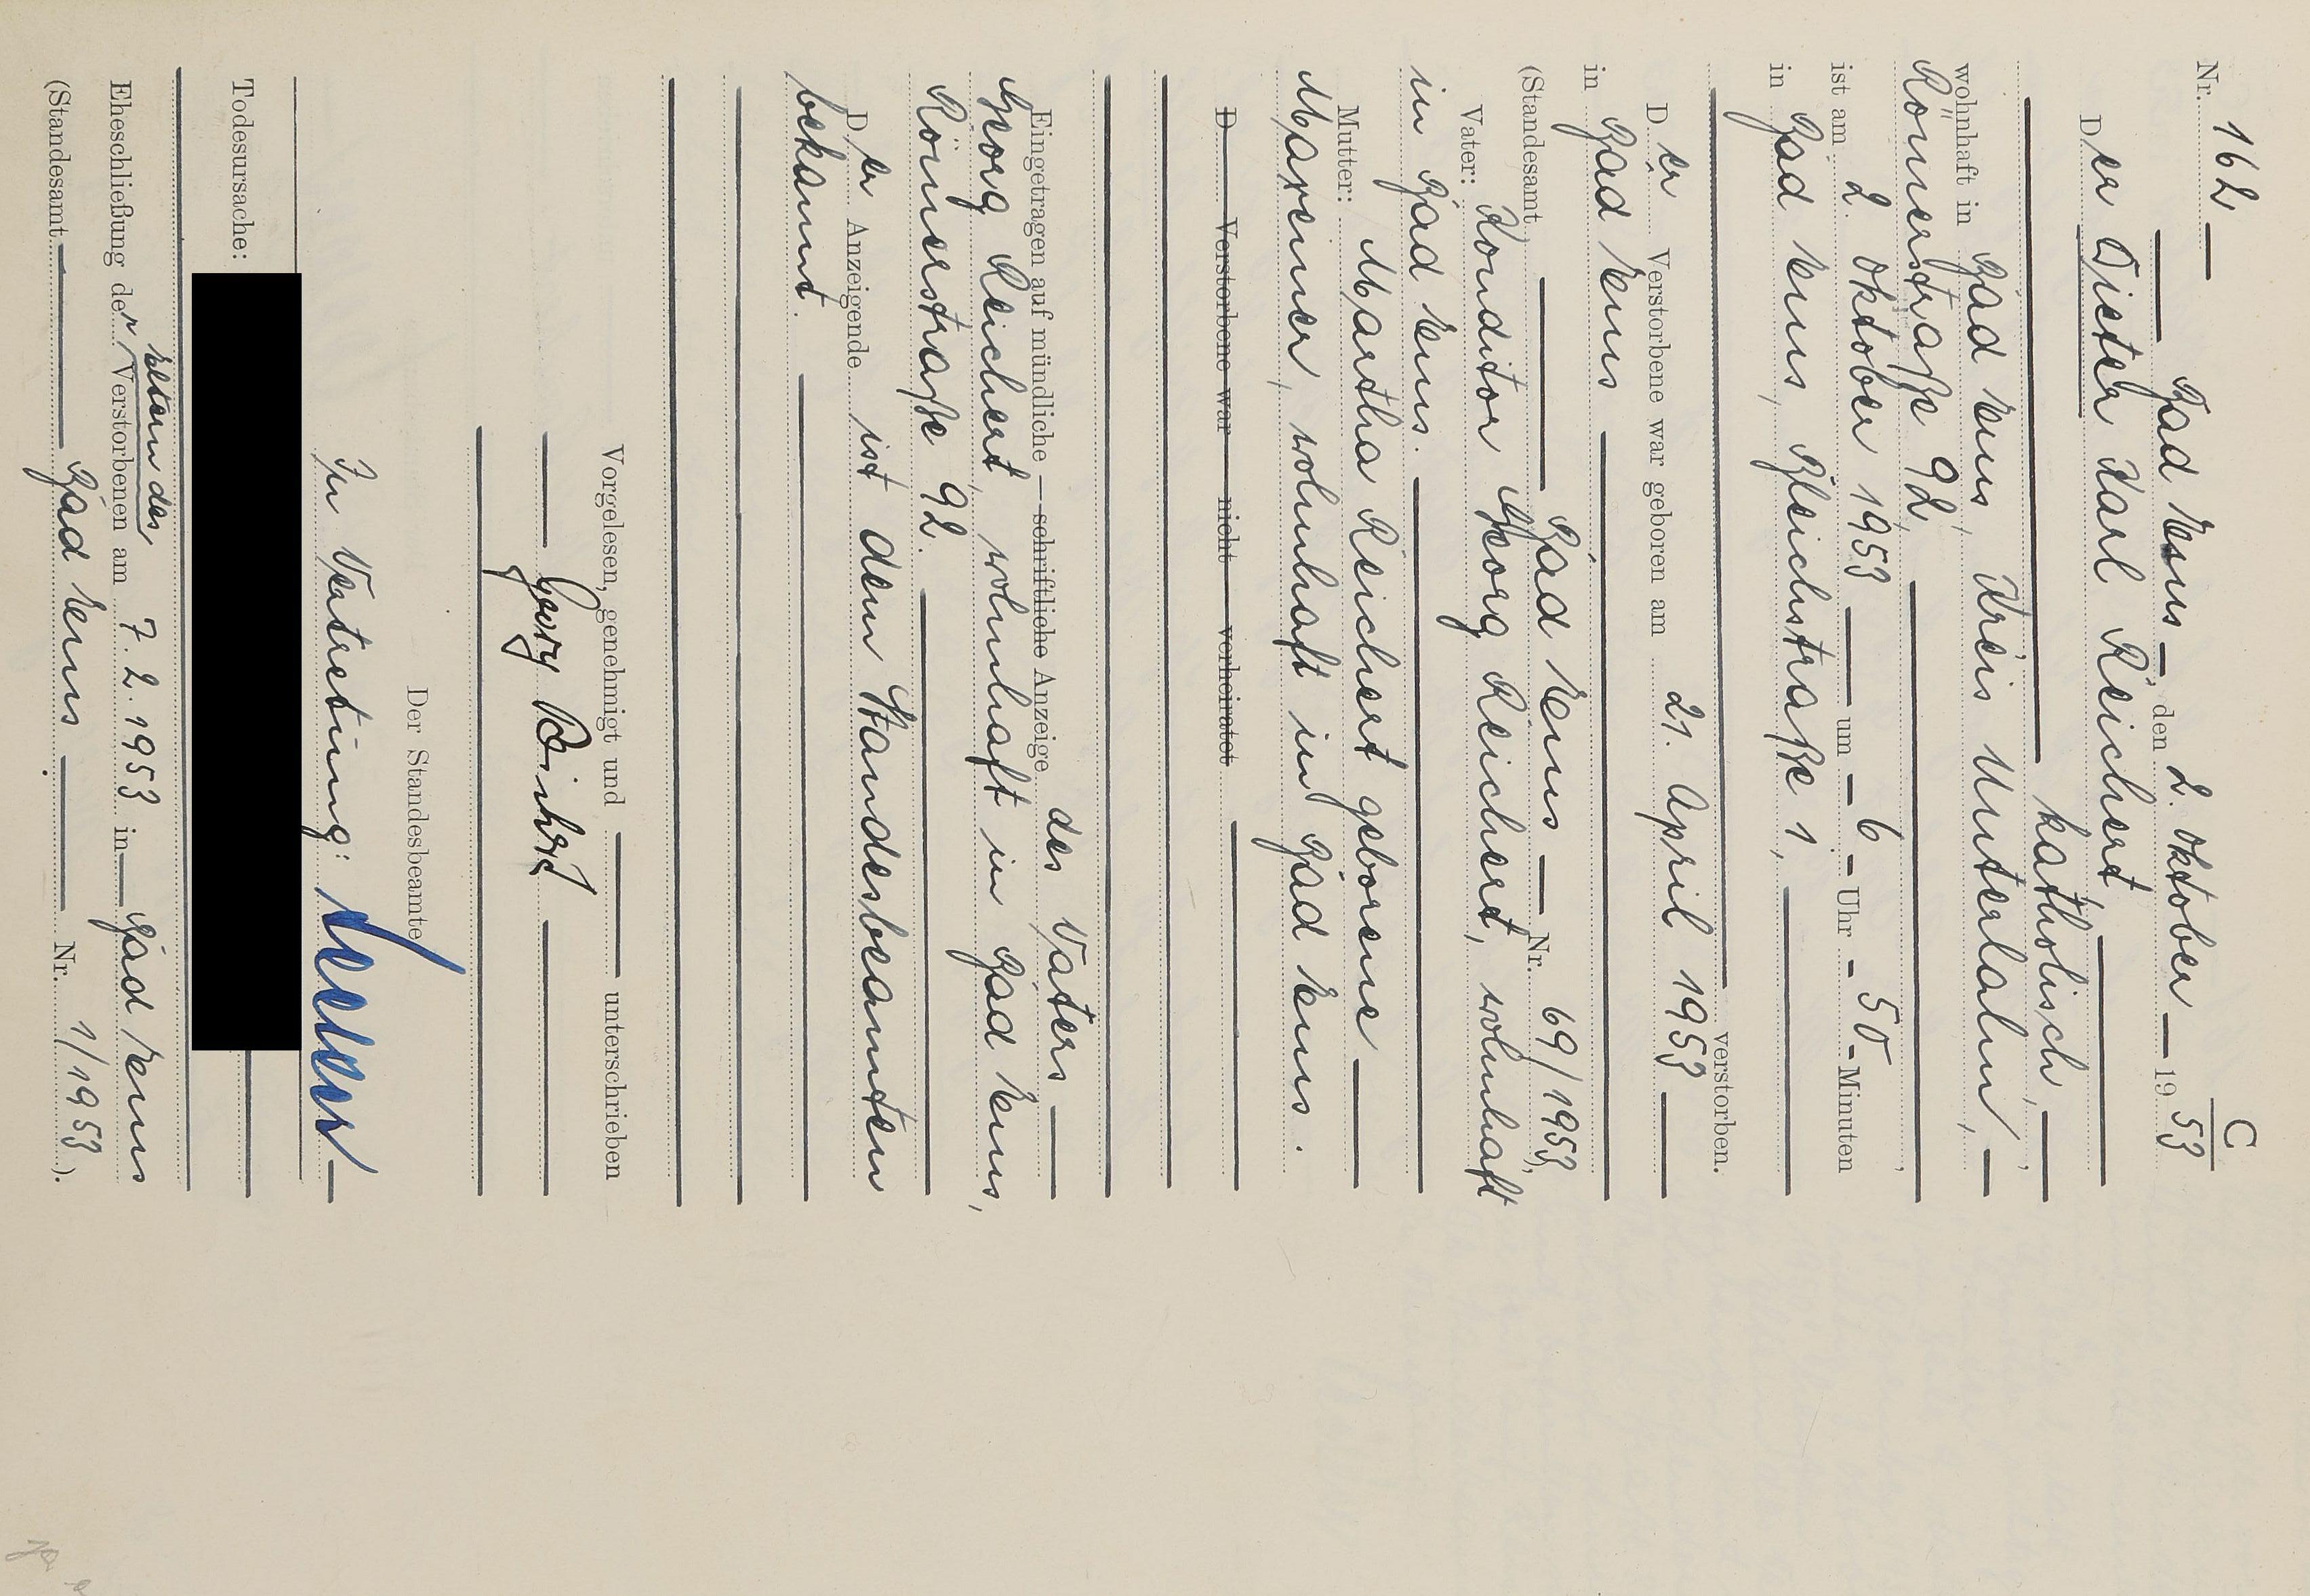 C
Nr. 162
Bad Ems den 2. Oktober 1953
Der Dieter Karl Reichert,
katholisch,
wohnhaft in Bad Ems, Kreis Unterlahn,
Römerstraße 92,
ist am 2. Oktober 1953 um 6 Uhr 50 Minuten
in Bad Ems, Bleichstraße 1,
verstorben.
Der Verstorbene war geboren am 21. April 1953
in Bad Ems
(Standesamt Bad Ems Nr. 69/1953),
Vater: Konditor Georg Reichert, wohnhaft
in Bad Ems.
Mutter: Martha Reichert geborene
Maxeiner, wohnhaft in Bad Ems.
D Verstorbene war nicht verheiratet
Eingetragen auf mündliche schriftliche Anzeige des Vaters
Georg Reichert, wohnhaft in Bad Ems,
Römerstraße 92.
Der Anzeigende ist dem Standesbeamten
bekannt.
Vorgelesen, genehmigt und unterschrieben
Georg Reichert
Der Standesbeamte
In Vertretung:
Todesursache:
Eltern des
Eheschließung der Verstorbenen am 7. 2. 1953 in Bad Ems
(Standesamt Bad Ems Nr. 1/1953).